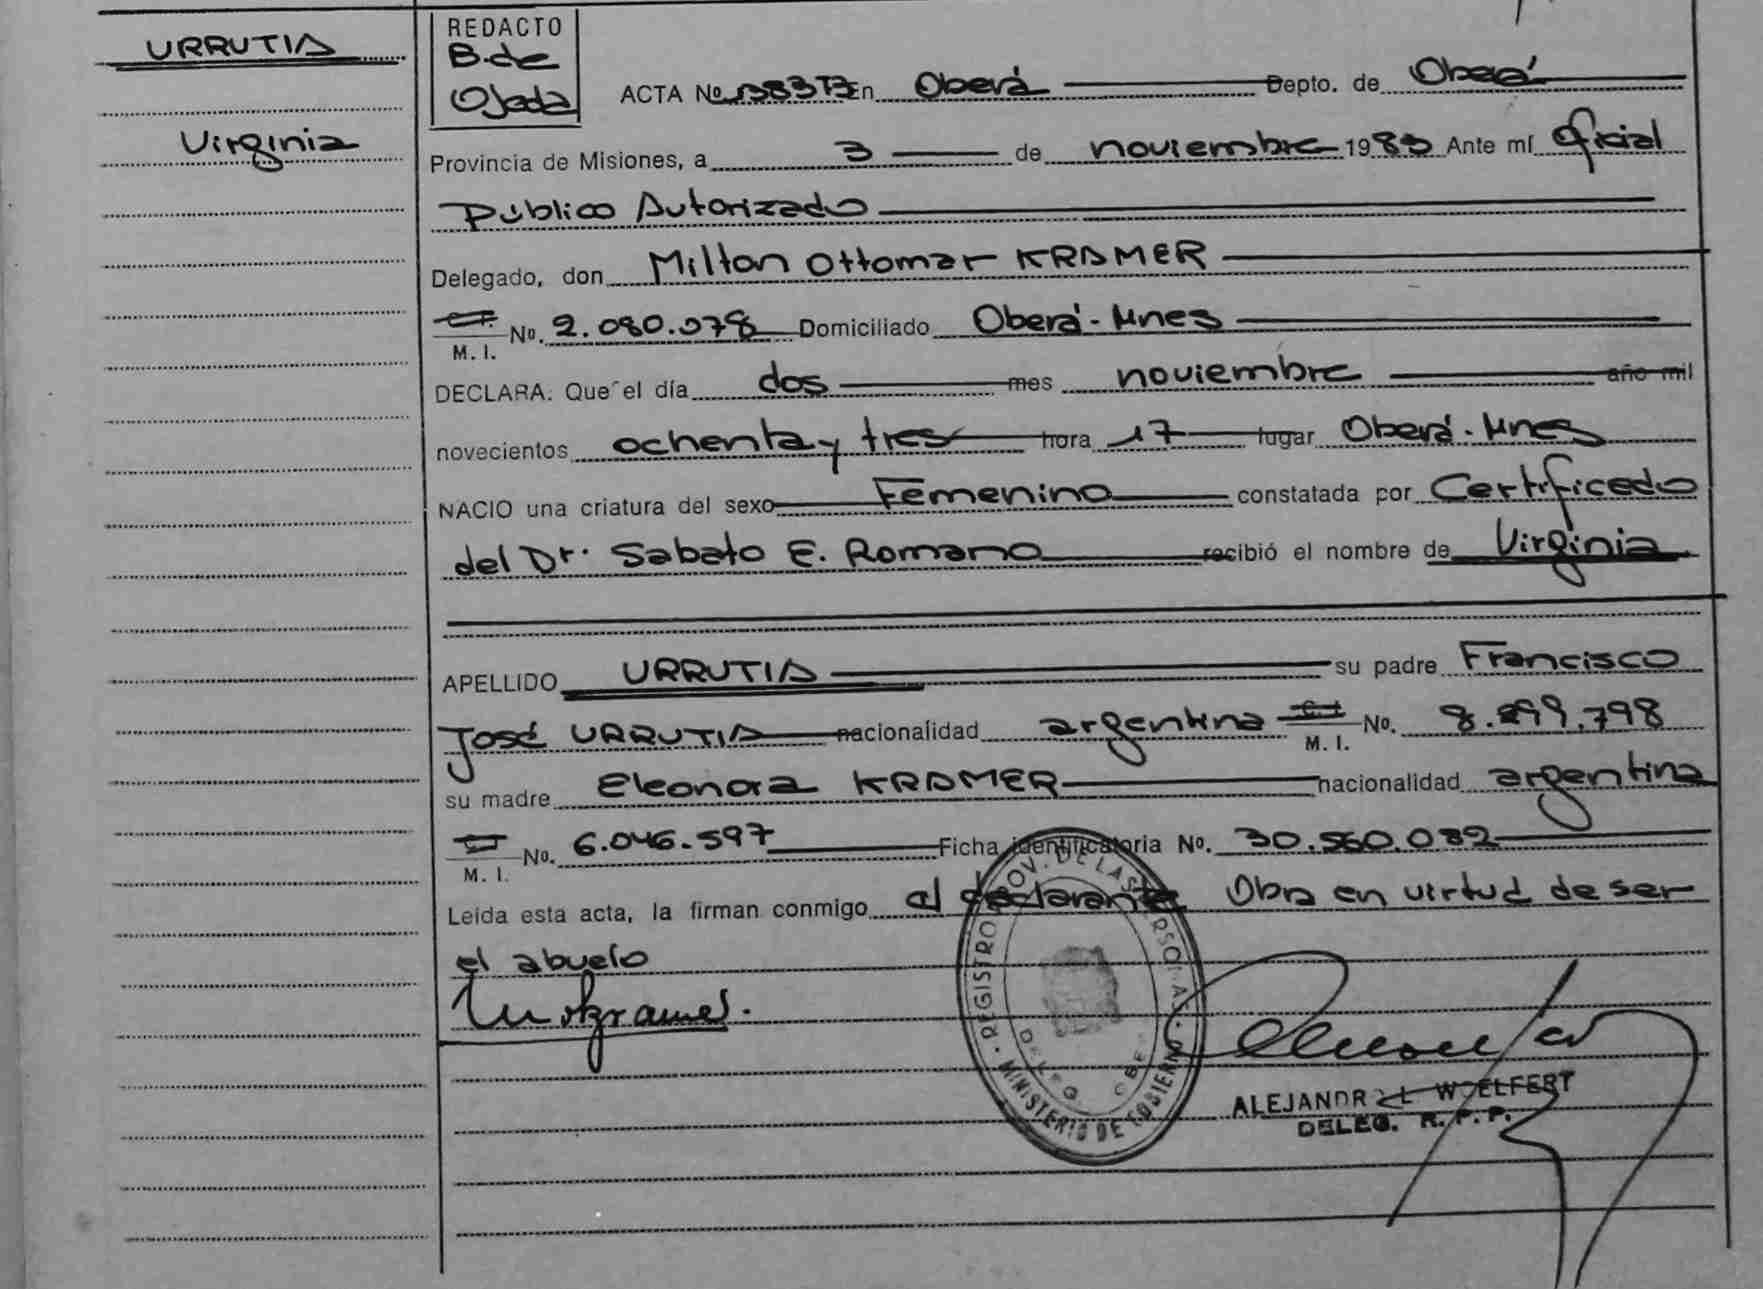 URRUTIA
Virginia
REDACTO
B. de
Ojeda
ACTA No. En Oberá Depto. de Oberá
Provincia de Misiones, a 3 de noviembre 1983 Ante mí Oficial
Público Autorizado
Delegado, don Milton Ottomar KRAMER
No. 2.080.078 Domiciliado Oberá - Mnes
M. I.
DECLARA: Que el día dos mes noviembre año mil
novecientos ochenta y tres hora 17 lugar Oberá - Mnes
NACIO una criatura del sexo Femenino constatada por Certificado
del Dr. Sabato E. Romano recibió el nombre de Virginia
APELLIDO URRUTIA su padre Francisco
José URRUTIA nacionalidad argentina C.I. No. 8.899.798
M. I.
su madre Eleonora KRAMER nacionalidad argentina
No. 6.046.597 Ficha identificatoria No. 30.560.082
M. I.
Leída esta acta, la firman conmigo el declarante Obra en virtud de ser
el abuelo
REGISTRO PROV. DE LAS PERSONAS
MINISTERIO DE GOBIERNO
ALEJANDRO L. WOELFERT
DELEG. R. P. P.